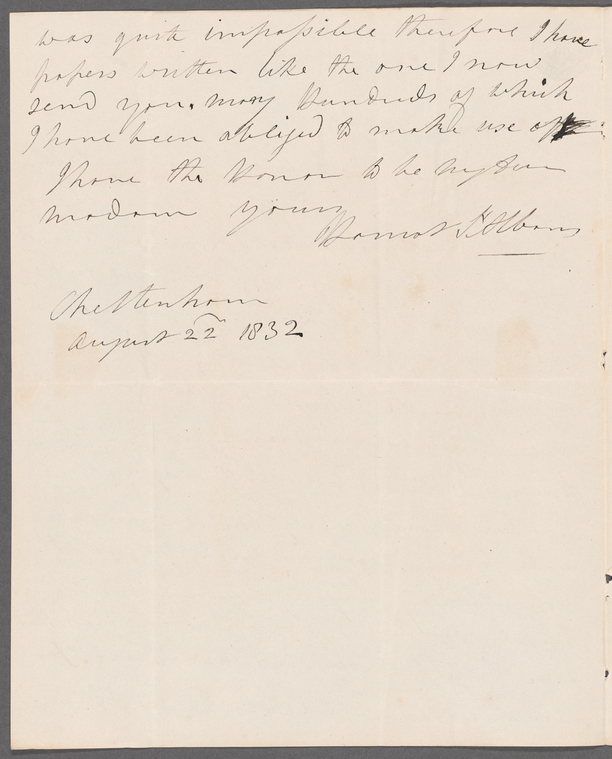 was quite impossible therefore I have
papers written like the one I now
send you. many Hundreds of which
I have been obliged to make use of
I have the Honor to be my Dear
madam yours
Harriot St Albans
Cheltenham
August 22 1832